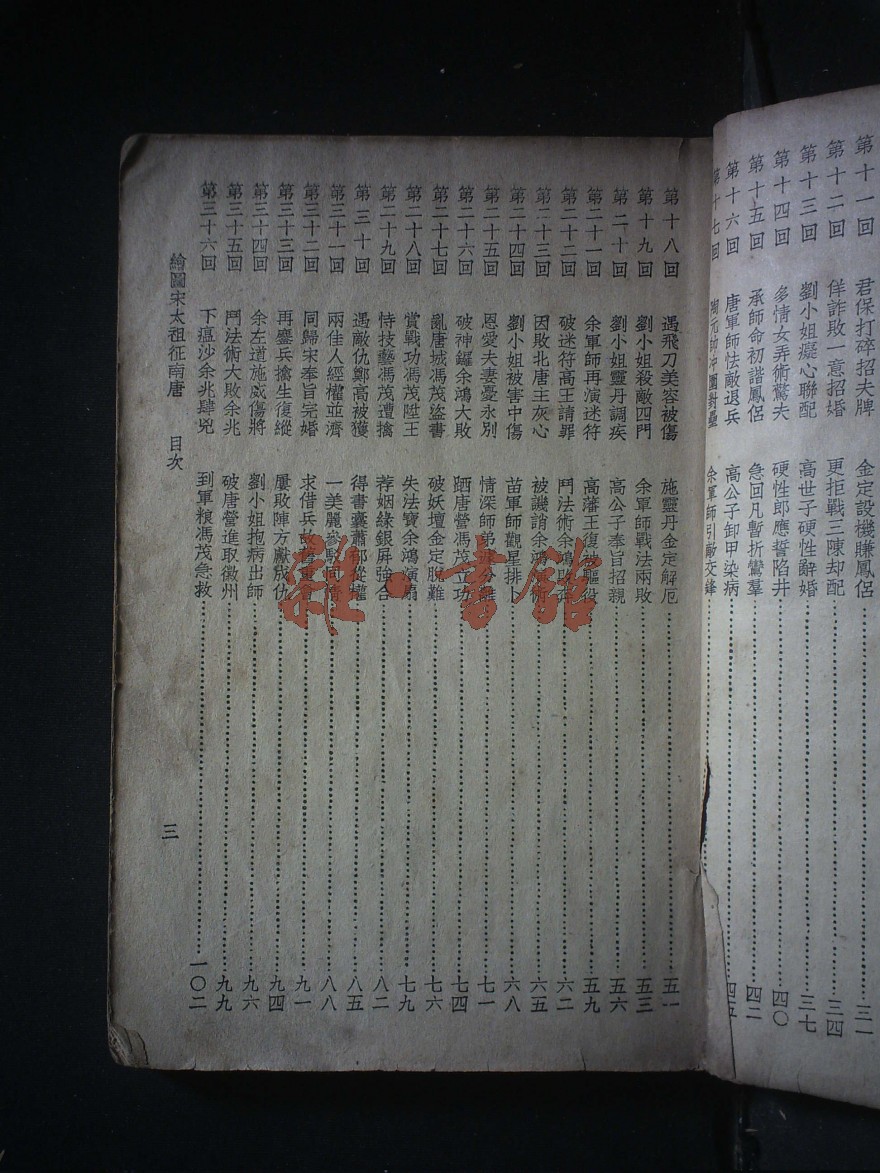 第十一回 君保打碎招夫牌 金定設機賺鳳侶 三一
第十二回 佯詐敗一意招婚 更拒戰三陳却配 三四
第十三回 劉小姐癡心聯配 高世子硬性辭婚 三七
第十四回 多情女弄術驚夫 硬性郎應誓陷井 四〇
第十五回 承師命初諧鳳侶 急回凡暫折鸞羣 四二
第十六回 唐軍師怯敵退兵 高公子卸甲染病 四五
第十七回 陶元帥冲圍對壘 余軍師引敵交鋒
第十八回 遇飛刀美容被傷 施靈丹金定解厄 五一
第十九回 劉小姐殺敵四門 余軍師戰法兩敗 五三
第二十回 劉小姐靈丹調疾 高公子奉旨招親 五六
第二十一回 余軍師再演迷符 高藩王復被驅役 五九
第二十二回 破迷符高王請罪 鬥法術余鴻敗 六二
第二十三回 因敗北唐主灰心 被譏誚余鴻術 六五
第二十四回 劉小姐被害中傷 苗軍師觀星排卜 六八
第二十五回 恩愛夫妻憂永別 情深師弟分離 七一
第二十六回 破神鑼余鴻大敗 踹唐營馮茂立功 七四
第二十七回 亂唐城馮茂盜書 破妖壇金定脫難 七六
第二十八回 賞戰功馮茂陞王 失法寶余鴻演扇 七九
第二十九回 恃技藝馮茂遭擒 荐姻緣銀屏強合 八二
第三十回 遇敵仇鄭高被獲 得書囊蕭郁從權 八五
第三十一回 兩佳人經權並濟 一美麗參駁同 八八
第三十二回 同歸宋奉旨完婚 求借兵故 九一
第三十三回 再鏖兵擒生復縱 屢敗陣方獻成仇 九四
第三十四回 余左道施威傷將 劉小姐抱病出師 九六
第三十五回 鬥法術大敗余兆 破唐營進取徽州 九九
第三十六回 下瘟沙余兆肆兇 到軍粮馮茂急救 一〇二
繪圖宋太祖征南唐 目次 三
雜·書館